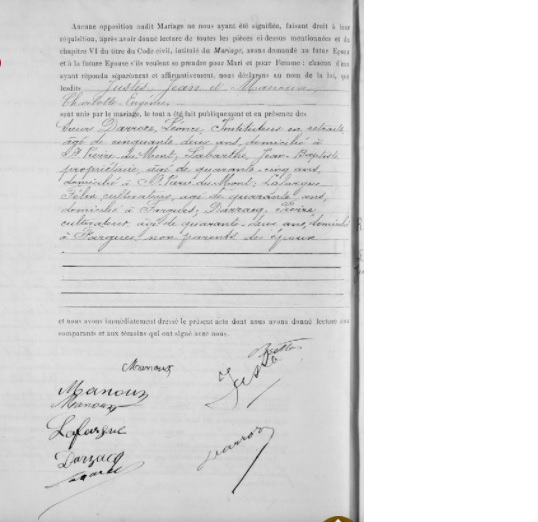 Aucune opposition audit Mariage ne nous ayant été signifiée, faisant droit à leur
réquisition, après avoir donné lecture de toutes les pièces ci dessus mentionnées et du
chapitre VI du titre du Code civil, intitulé du Mariage, avons demandé au futur Epoux
et à la future Epouse s'ils veulent se prendre pour Mari et pour Femme : chacun d'eux
ayant répondu séparément et affirmativement, nous déclarons au nom de la loi, que
lesdits Justes Jean et Manoux
Charlotte Eugénie
sont unis par le mariage, le tout a été fait publiquement et en présence des
Léonce, Instituteur en retraite,
âgé de cinquante deux ans, domicilié à
du Mont, Labarthe, Jean Baptiste
propriétaire, âgé de quarante cinq ans,
domicilié à du Mont, Lafargue
cultivateur, âgé de quarante ans,
domicilié à Fargues, Darracq, Pierre
cultivateur, âgé de quarante deux ans, domicilié
à Fargues, non parents des époux
et nous avons immédiatement dressé le présent acte dont nous avons donné lecture aux
comparants et aux témoins qui ont signé avec nous.
Manoux
Manoux
Manoux
Lafargue
Darracq